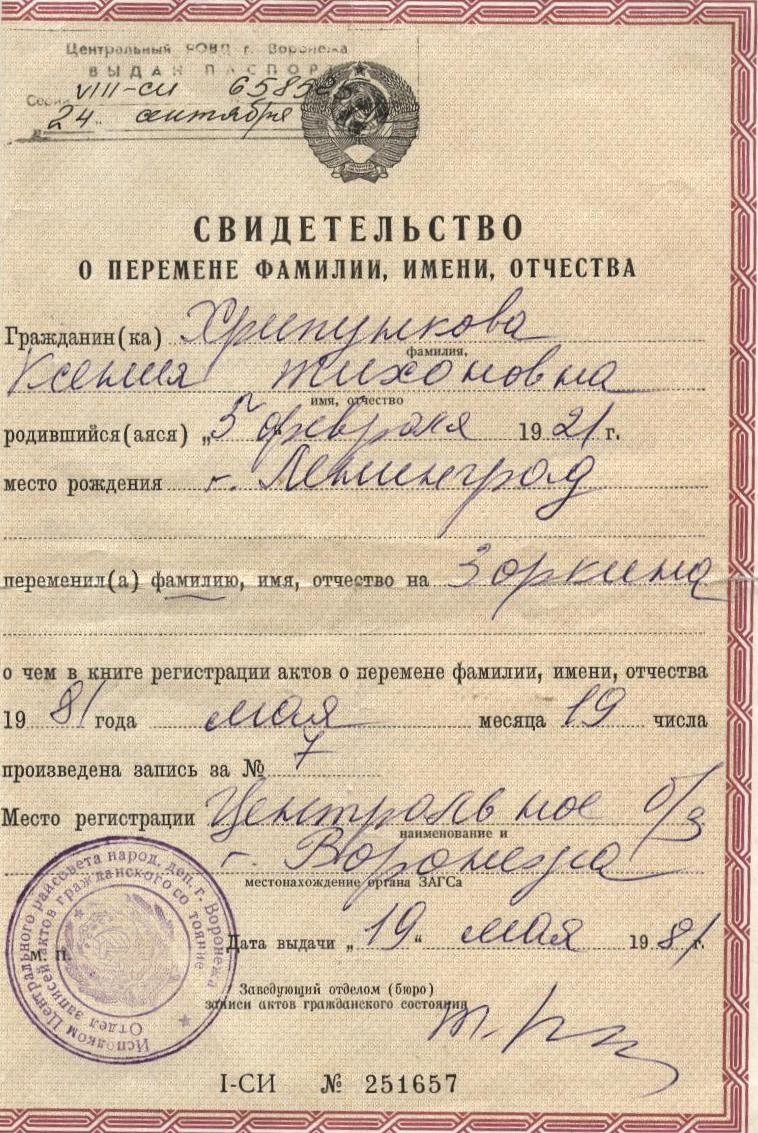 Центральный РОВД г. Воронежа
ВЫДАН ПАСПОРТ
Серия VIII-СИ
24 сентября
СВИДЕТЕЛЬСТВО
О ПЕРЕМЕНЕ ФАМИЛИИ, ИМЕНИ, ОТЧЕСТВА
Гражданин(ка) Хрипункова
фамилия,
Ксения Тихоновна
имя, отчество
родившийся(аяся) „5 февраля 1921 г.
место рождения г. Ленинград
переменил(а) фамилию, имя, отчество на Зоркина
о чем в книге регистрации актов о перемене фамилии, имени, отчества
1981 года мая месяца 19 числа
произведена запись за № 7
Место регистрации Центральное о/з
наименование и
г. Воронежа
местонахождение органа ЗАГСа
Исполком Центрального райсовета народ. деп. г. Воронежа
Отдел записей актов гражданского состояние
М. П.
Дата выдачи „19“ мая 1981 г.
Заведующий отделом (бюро)
записи актов гражданского состояния
I-СИ № 251657